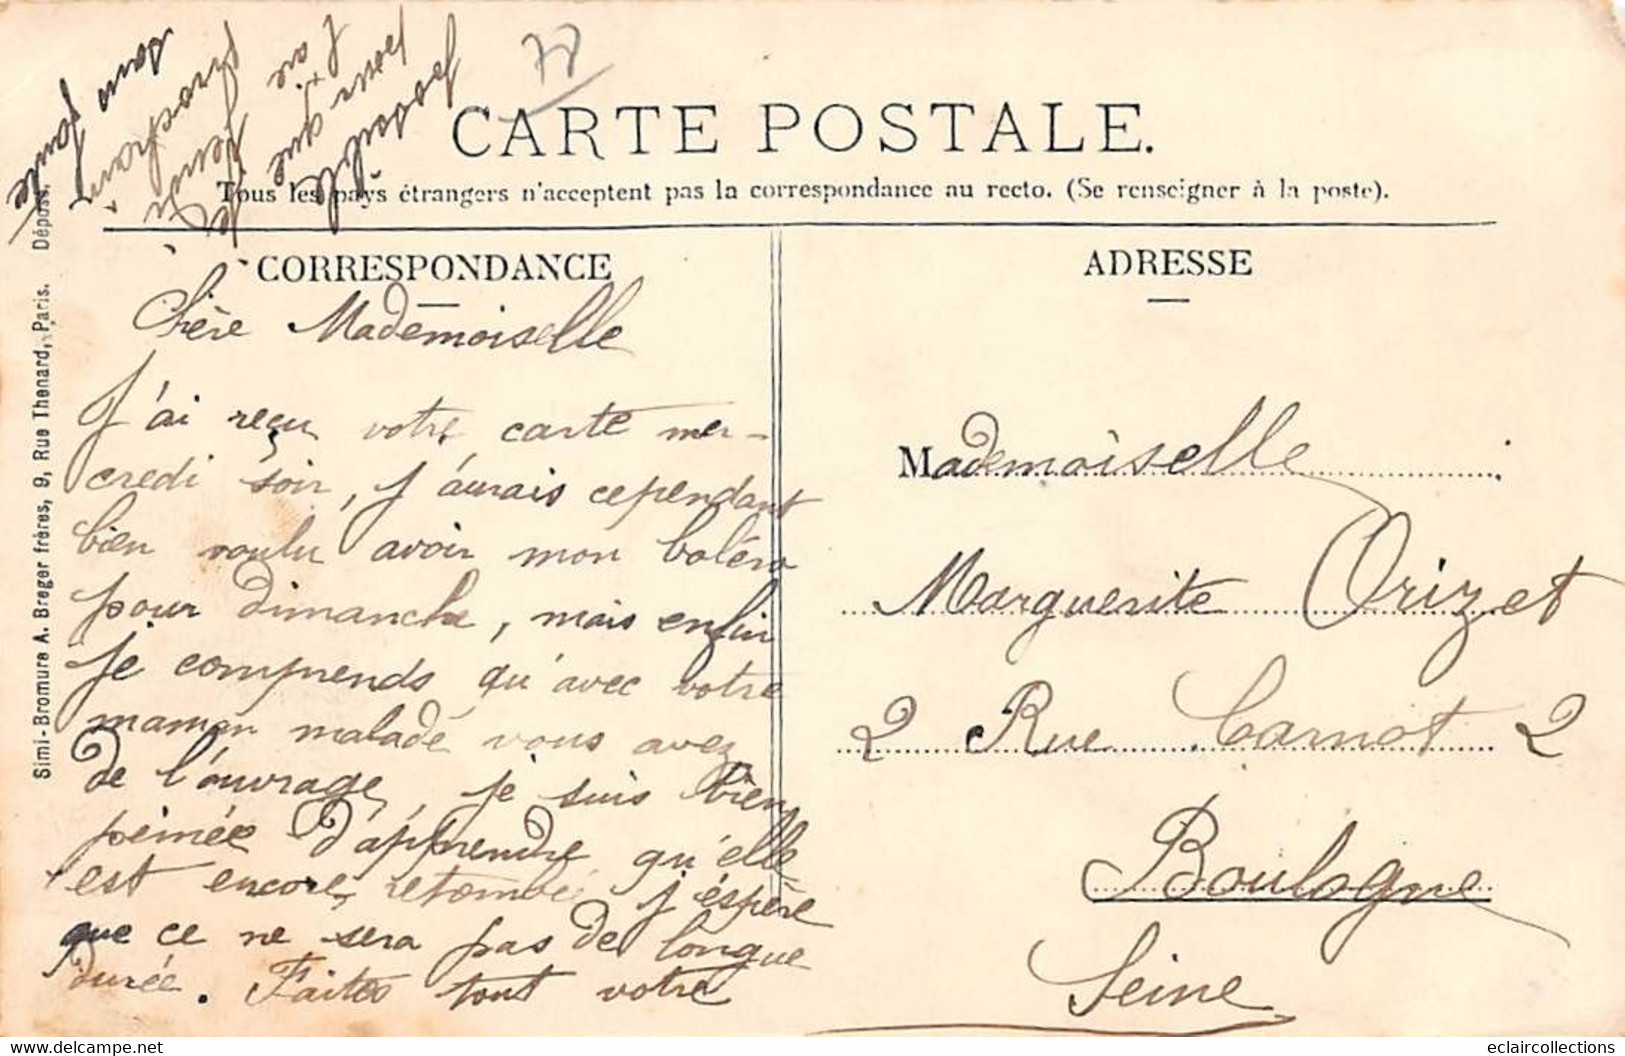 77
CARTE POSTALE.
Tous les pays étrangers n'acceptent pas la correspondance au recto. (Se renseigner à la poste).
CORRESPONDANCE
Chère Mademoiselle
J'ai reçu votre carte mer-
credi soir, j'aurais cependant
bien voulu avoir mon boléro
pour dimanche, mais enfin
je comprends qu'avec votre
maman malade vous avez
de l'ouvrage, je suis bien
peinée d'apprendre qu'elle
est encore retombée j'espère
que ce ne sera pas de longue
durée. Faites tout votre
possible
pour que
je
prochain
Simi-Bromure A. Breger frères, 9, Rue Thenard, Paris. Déposé.
ADRESSE
Mademoiselle
Marguerite Orizet
2 Rue Carnot 2
Boulogne
Seine
eclaircollections